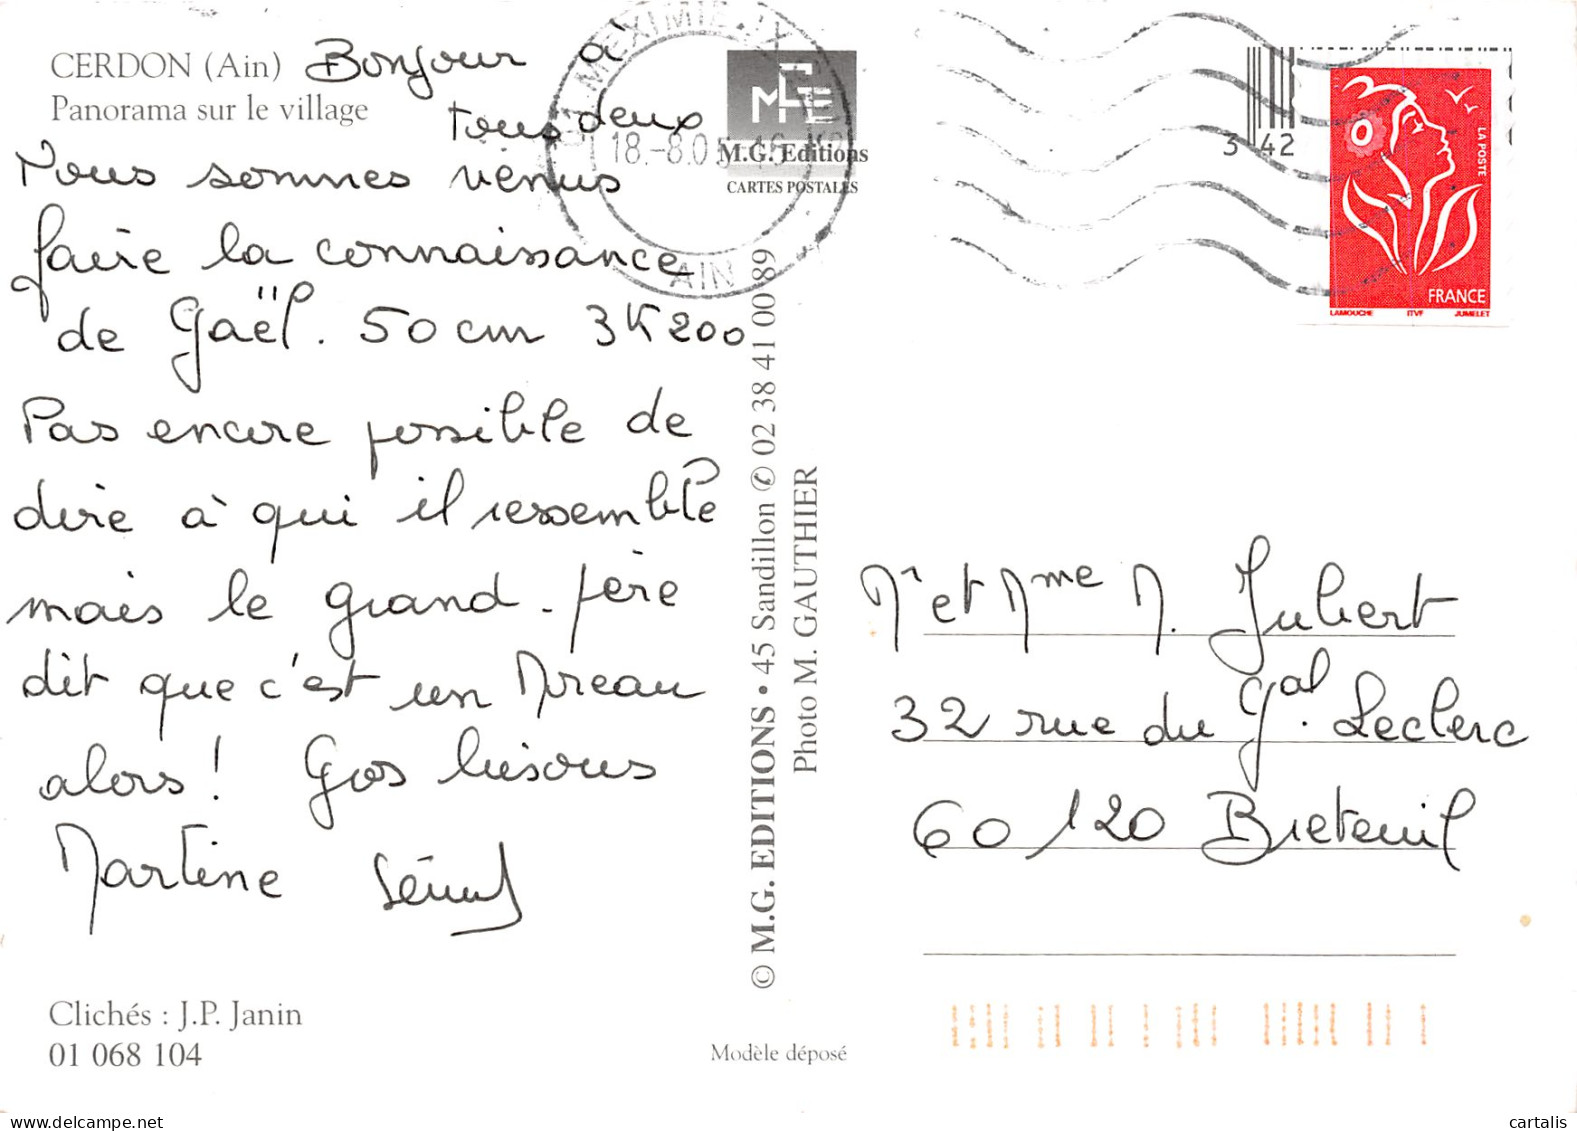 CERDON (Ain)
Panorama sur le village
Bonjour à
tous deux
Nous sommes venus
faire la connaissance
de Gaël. 50 cm 3K200
Pas encore possible de
dire à qui il ressemble
mais le grand-père
dit que c'est un Moreau
alors ! Gros bisous
Martine
Clichés : J.P. Janin
01 068 104
M.G. Editions
CARTES POSTALES
© M.G. EDITIONS • 45 Sandillon ✆ 02 38 41 00 89
Photo M. GAUTHIER
Modèle déposé
01 MEXIMIEUX
18.-8.05
AIN
3 42
LA POSTE
FRANCE
LAMOUCHE ITVF JUMELET
Mr et Mme M. Jubert
32 rue du Gal. Leclerc
60120 Breteuil
cartalis